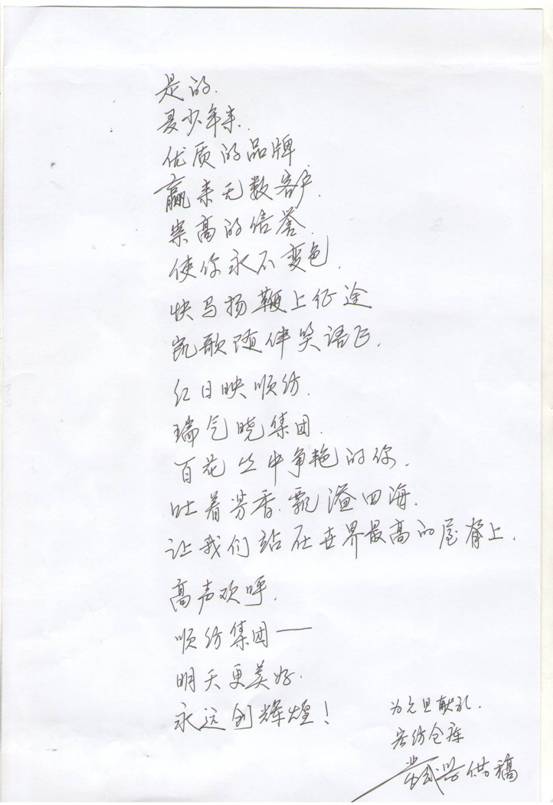 是的.
多少年来.
优质的品牌
赢来无数客户.
崇高的信誉.
使你永不变色.
快马扬鞭上征途
凯歌随伴笑语飞.
红日映顺纺.
瑞气晓集团.
百花丛中争艳的你.
吐着芳香.飘溢四海.
让我们站在世界最高的屋脊上.
高声欢呼.
顺纺集团——
明天更美好.
永远创辉煌!
为元旦献礼.
纺仓库
供稿